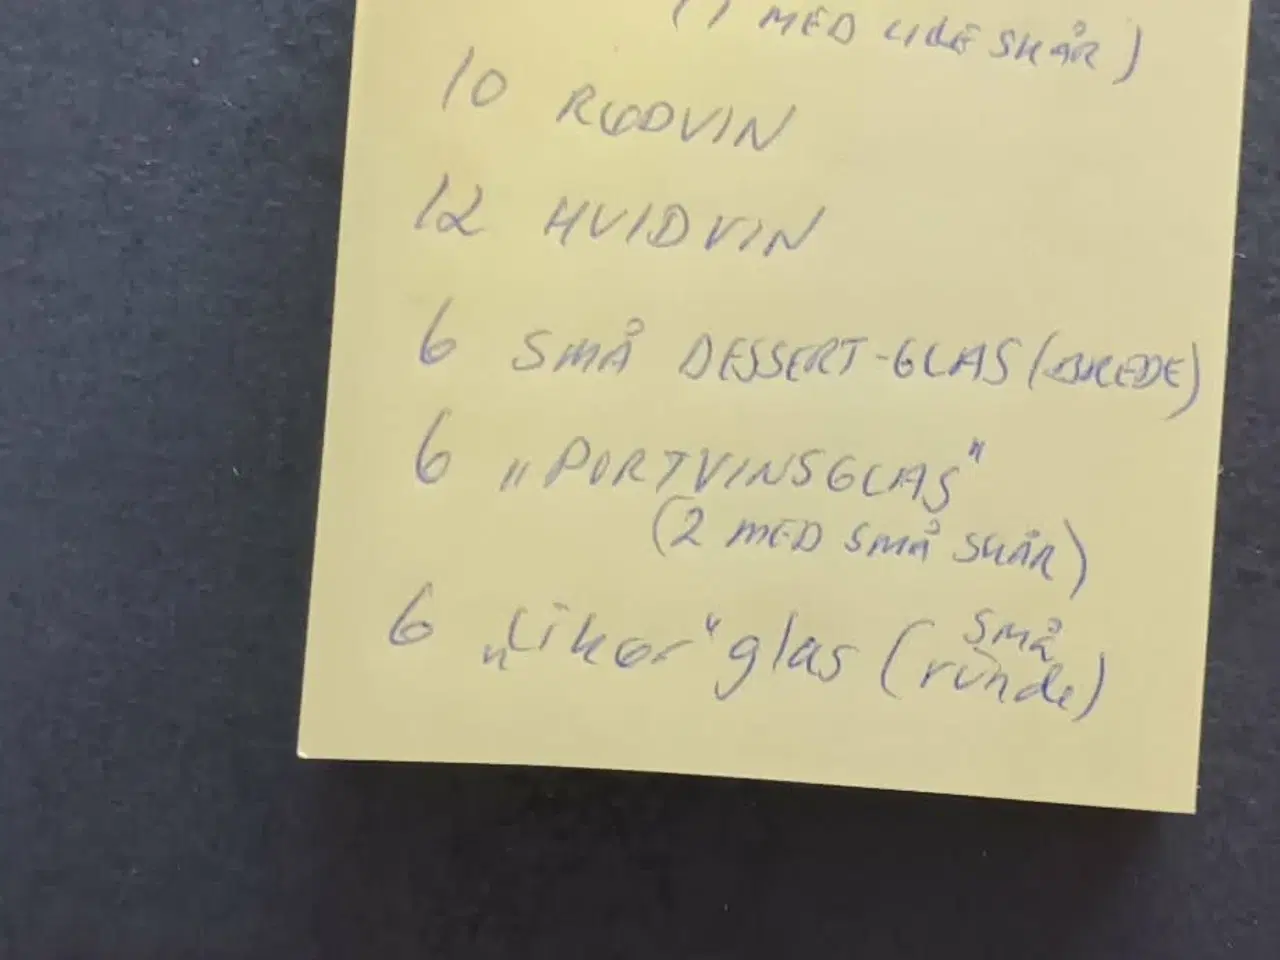 (1 MED LIDE SKÅR)
10 RØDVIN
12 HVIDVIN
6 SMÅ DESSERT-GLAS (BREDE)
6 „PORTVINSGLAS"
(2 MED SMÅ SKÅR)
6 „Likør" glas (små
runde)